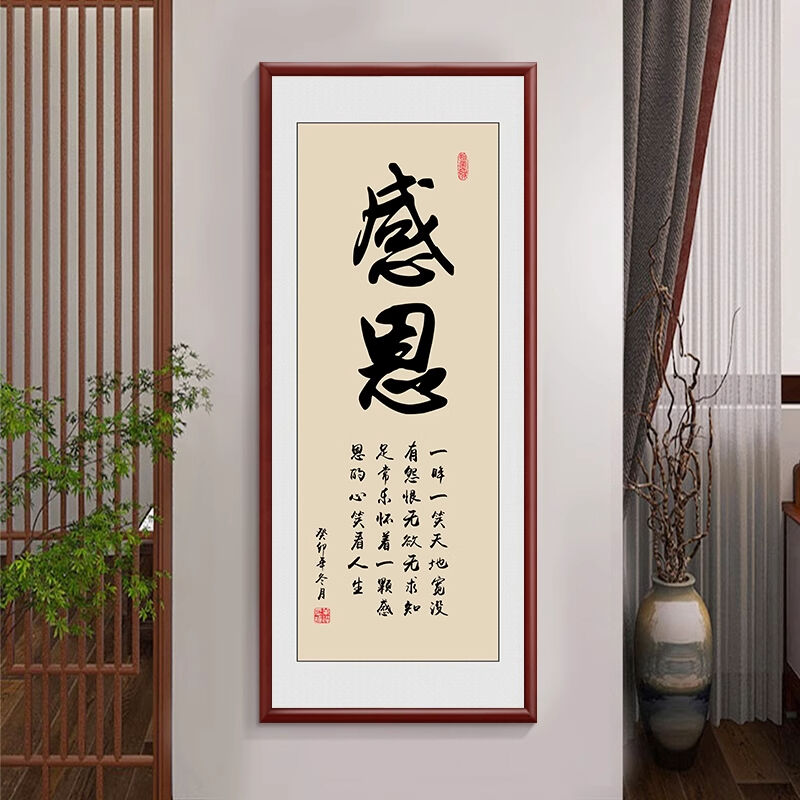 感恩
一眸一笑天地宽没
有怨恨无欲无求知
足常乐怀着一颗感
恩的心笑看人生
癸卯年冬月